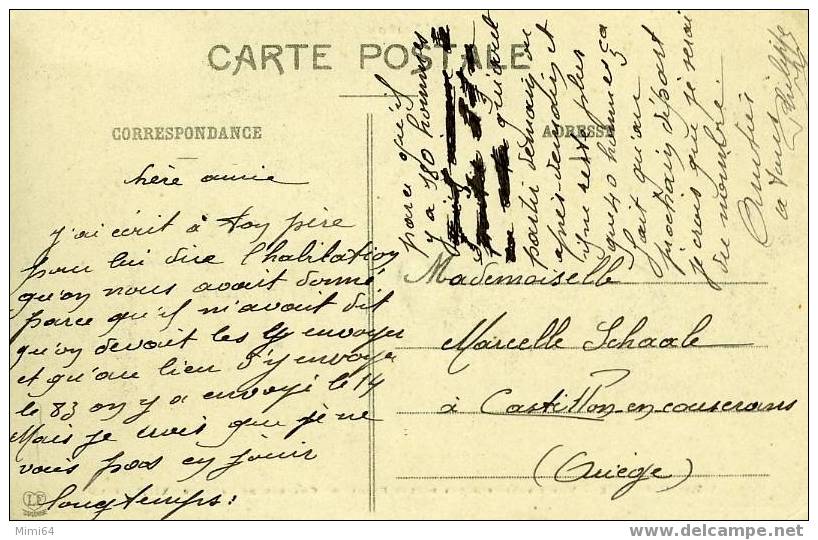 CARTE POSTALE
CORRESPONDANCE
ADRESSE
hère amie
j'ai écrit à ton père
pour lui dire l'habitation
qu'on nous avait donné
parce qu'il m'avait dit
qu'on devait les y envoyer
et qu'au lieu d'y envoyer
le 83 on y a envoyé le 14
Mais je crois que je ne
vais pas en jouir
longtemps:
parce qu'il
y a 180 hommes
qui avait
partir demain ou
après-demain et
il ne reste plus
que 40 hommes ça
fait qu'au
prochain départ
je crois que je serai
du nombre.
Amitiés
à tous
Philippe
Mademoiselle
Marcelle Schaale
à Castillon-en-couserans
(Ariège)
Mimi64
www.delcampe.net